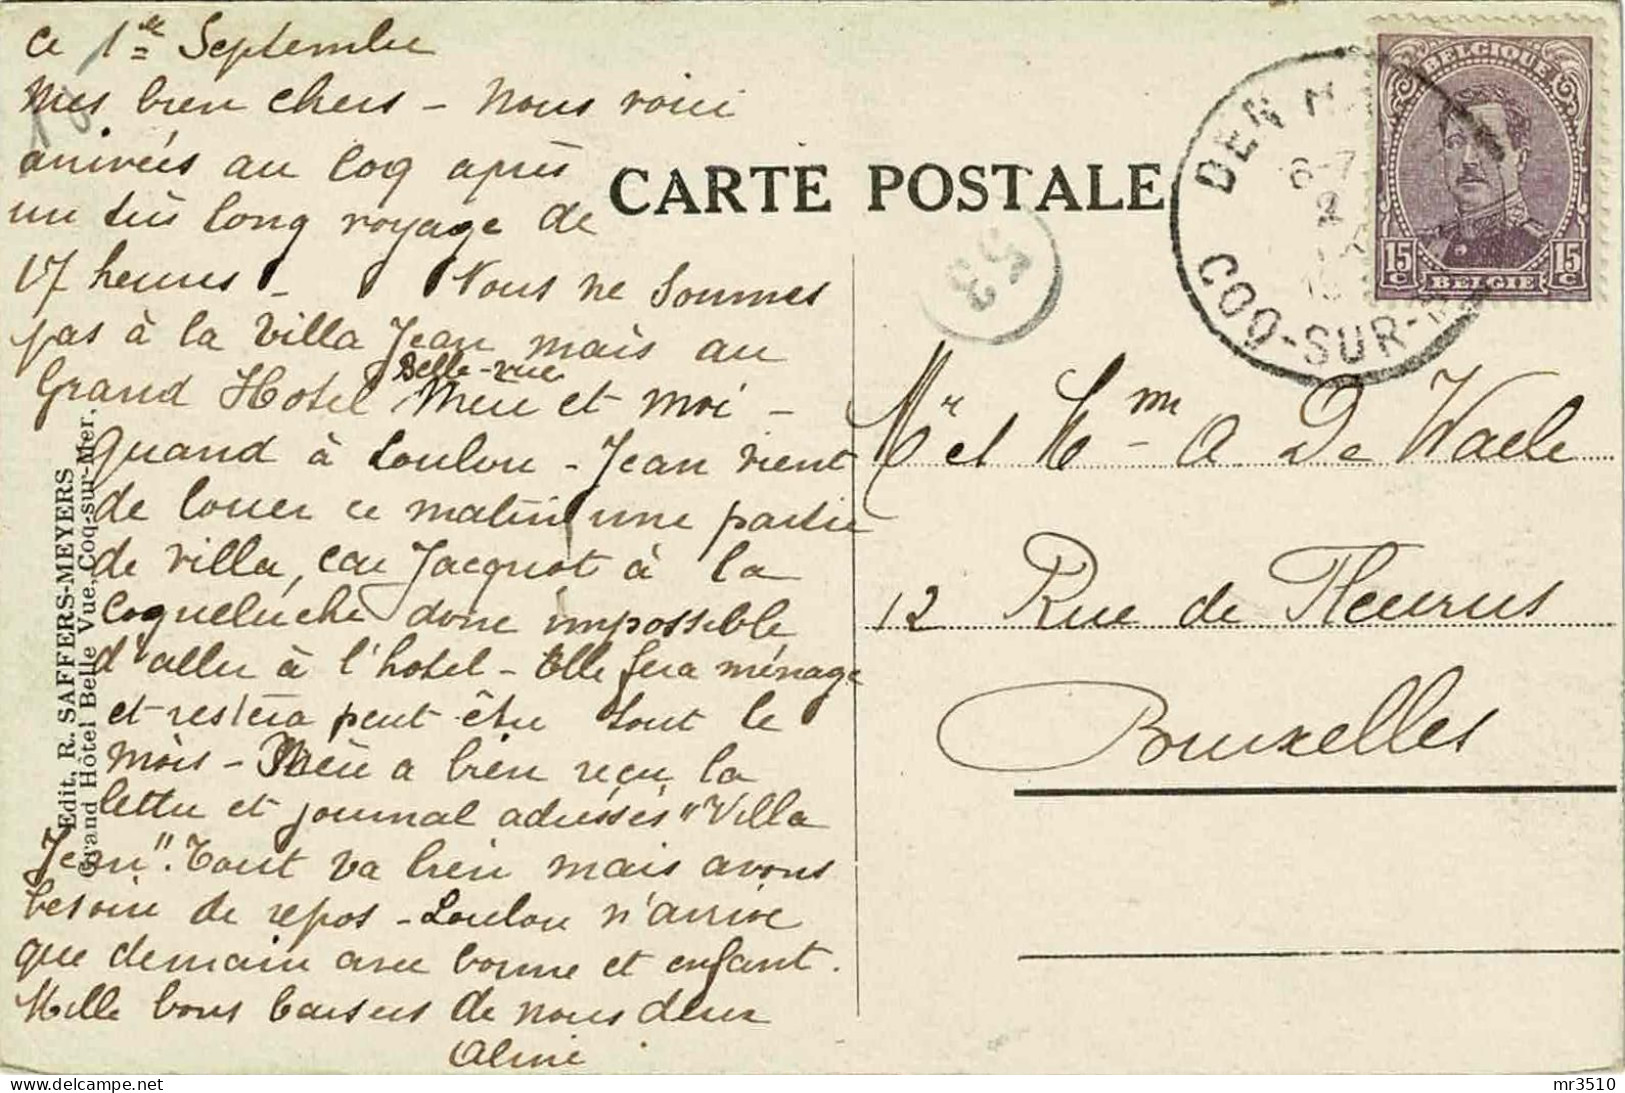 ce 1re Septembre
Mes bien chers - Nous voici
arrivées au Coq après
un très long voyage de
17 heures - Nous ne sommes
pas à la Villa Jean mais au
Belle-vue
Grand Hotel Mère et moi -
quand à Loulou - Jean vient
de louer ce matin une partie
de villa, car Jacquot à la
coqueluche donc impossible
d'aller à l'hotel - Elle fera ménage
et restera peut être tout le
mois - Mère a bien reçu la
lettre et journal adressés "Villa
Jean". Tout va bien mais avons
besoin de repos - Loulou n'arrive
que demain avec bonne et enfant.
Mille bons baisers de nous deux
Aline
Edit., R. SAFFERS-MEYERS
Grand Hôtel Belle Vue, Coq-sur-Mer.
CARTE POSTALE
53
DEN HA
6-7
2
COQ-SUR-M
BELGIQUE
15 C
15 C
BELGIE
Mr et Mme A De Waele
12 Rue de Fleurus
Bruxelles
mr3510